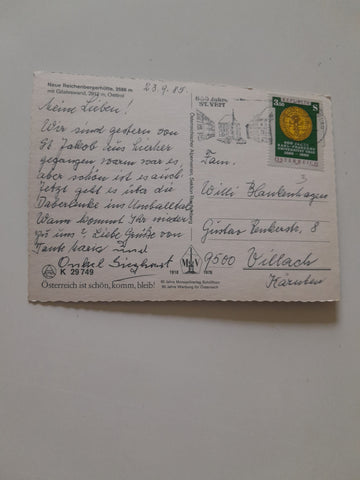 Neue Reichenbergerhütte, 2586 m
mit Gösleswand, 2912 m, Osttirol
23.9.85.
Meine Lieben!
Wir sind gestern von
St. Jakob aus hierher
gegangen warm war es,
aber schön ist es auch.
Jetzt geht es über die
Daberlenke ins Umbaltal.
Wann kommt Ihr wieder
zu uns? Liebe Grüße von
Tante und
Onkel Sieghart
K 29 749
1918 1978
60 Jahre Werbung für Österreich
Österreich ist schön, komm, bleib!
Österreichischer Alpenverein, Sektion
600 Jahre
ST. VEIT
REPUBLIK
3.50 S
ÖSTERREICH
Fam.
Willi Blankenhagen
Gustav Renkerstr. 8
9500 Villach
Kärnten